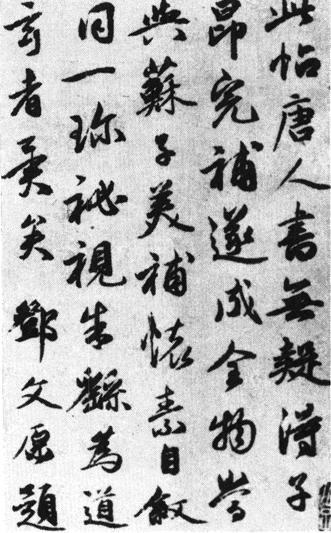 此帖唐人書無疑得子
昂完補遂成全物當
與蘇子美補懷素自敘
同一珍祕視朱繇為道
玄者異矣鄧文原題